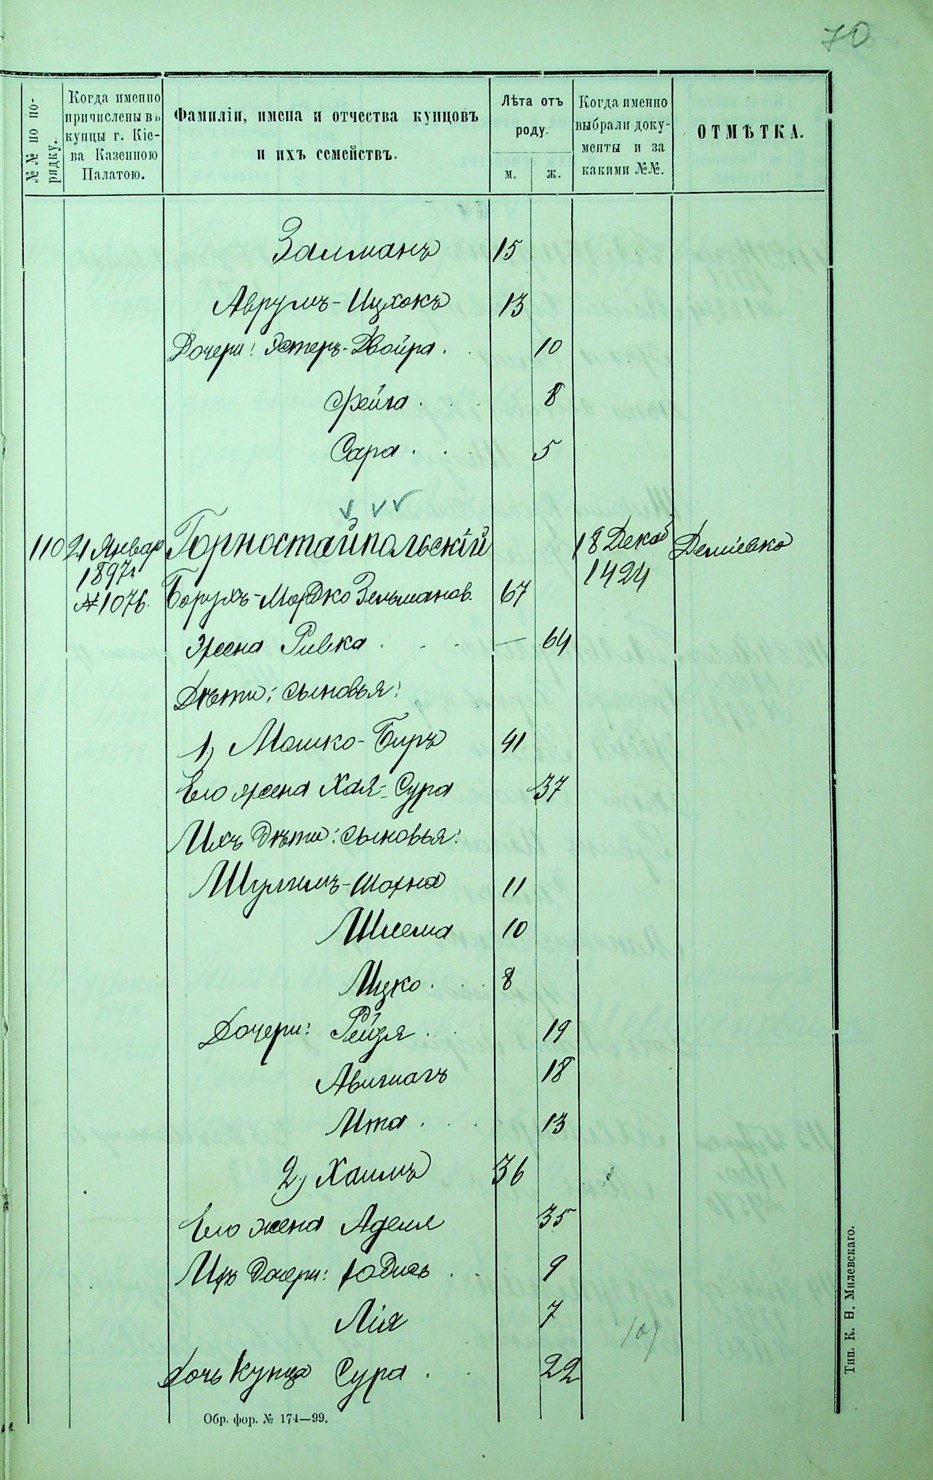 70
№№ по по-
рядку.
Когда именно
причислены въ
купцы г. Кіе-
ва Казенною
Палатою.
Фамиліи, имена и отчества купцовъ
и ихъ семействъ.
Лѣта отъ
роду.
м. ж.
Когда именно
выбрали доку-
менты и за
какими №№.
ОТМѢТКА.
Залманъ 15
Аврумъ-Ицхокъ 13
Дочери: Эстеръ-Двойра 10
Фейга 8
Сара 5
110 21 Январ Горностайпольскій 18 Декаб Деміевка
1897 1424
№1076 Борухъ-Мордко Зельманов. 67
Жена Ривка 64
Дѣти: сыновья:
1) Мошко-Беръ 41
Его жена Хая-Сура 37
Ихъ дѣти: сыновья:
Шулимъ-Шохна 11
Шлема 10
Ицко 8
Дочери: Рейзя 19
Авигиагъ 18
Ита 13
2) Хаимъ 36
Его жена Аделя 35
Ихъ дочери: Юдись 9
Лія 7
Дочь купца Сура 22
Обр. фор. № 174—99.
Тип. К. Н. Милевскаго.